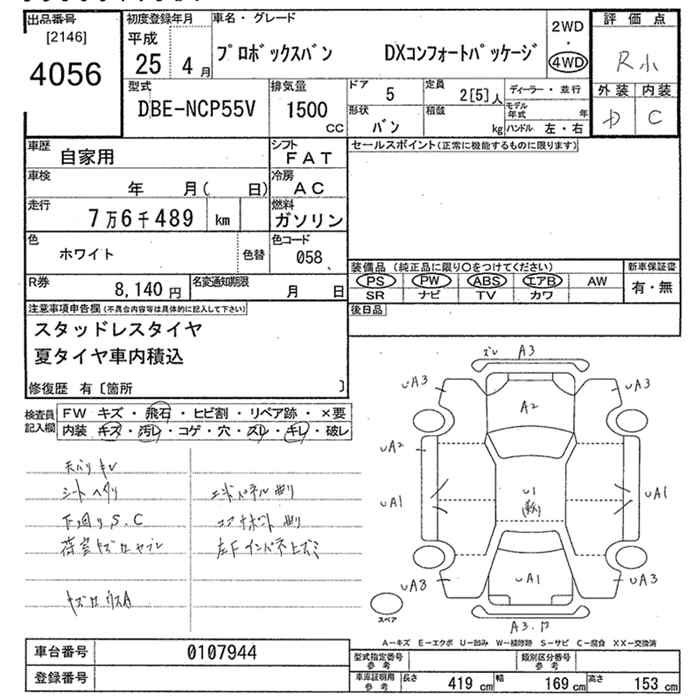 出品番号
[2146]
4056
初度登録年月
平成
25年 4月
車名・グレード
プロボックスバン DXコンフォートパッケージ
2WD
・
4WD
評価点
R小
外装 内装
D C
型式
DBE-NCP55V
排気量
1500
CC
ドア
5
定員
2[5]人
ディーラー・並行
形状
バン
積載
kg
モデル年式 年
ハンドル 左・右
車歴
自家用
シフト
FAT
車検
年 月( 日)
冷房
AC
走行
7万6千489 km
燃料
ガソリン
色
ホワイト
色替
色コード
058
R券
8,140円
名変通知期限
月 日
セールスポイント(正常に機能するものに限ります)
装備品(純正品に限り○をつけてください)
新車保証書
PS PW ABS エアB AW
有・無
SR ナビ TV カワ
後日品
注意事項申告欄(不具合内容等は具体的に記入して下さい)
スタッドレスタイヤ
夏タイヤ車内積込
修復歴 有〔箇所 〕
検査員記入欄
FW キズ・飛石・ヒビ割・リペア跡・×要
内装 キズ・汚レ・コゲ・穴・スレ・キレ・破レ
天バリ キレ
シートヘタリ
下廻りS.C
エンドパネル曲り
コアサポート曲り
ズレ A3
UA3
UA3
A2
UA2
UA1
U1
UA1
UA8
UA1
UA3
A3.P
スペア
A-キズ E-エクボ U-凹み W-補修跡 S-サビ C-腐食 XX-交換済
車台番号
0107944
登録番号
型式指定番号 参考
類別区分番号 参考
車庫証明用 参考
長さ 419cm 幅 169cm 高さ 153cm